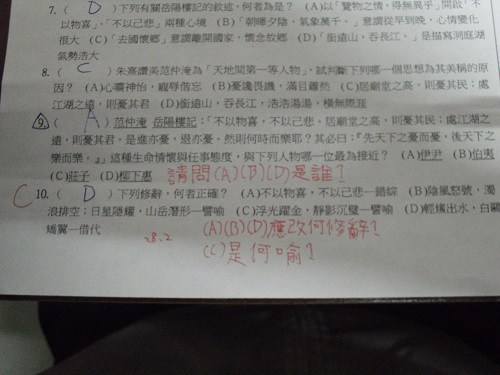 7.( D )下列有關岳陽樓記的敘述，何者為是？ (A)以「覽物之情，得無異乎」開啟「不
以物喜」、「不以己悲」兩種心境 (B)「朝暉夕陰，氣象萬千。」意謂從早到晚，心情變化
很大 (C)「去國懷鄉」意謂離開國家，懷念故鄉 (D)「銜遠山，吞長江，」是描寫洞庭湖
氣勢浩大
8.( C )朱熹讚美范仲淹為「天地間第一等人物」，試判斷下列哪一個思想為其美稱的原
因？ (A)心曠神怡，寵辱偕忘 (B)憂讒畏譏，滿目蕭然 (C)居廟堂之高，則憂其民；處
江湖之遠，則憂其君 (D)銜遠山，吞長江，浩浩湯湯，橫無際涯
9.( A )范仲淹 岳陽樓記：「不以物喜，不以己悲，居廟堂之高，則憂其民；處江湖之
遠，則憂其君，是進亦憂，退亦憂，然則何時而樂耶？其必曰：『先天下之憂而憂，後天下之
樂而樂，』」這種生命情懷與任事態度，與下列人物哪一位最為接近？ (A)伊尹 (B)伯夷
(C)莊子 (D)柳下惠 請問(A)(B)(D)是誰？
C 10.( D )下列修辭，何者正確？ (A)不以物喜，不以己悲—錯綜 (B)陰風怒號，濁
浪排空；日星隱耀，山岳潛形—譬喻 (C)浮光躍金，靜影沉璧—譬喻 (D)輕鰷出水，白鷗
矯翼—借代
28.2 (A)(B)(D)應改何修辭？
(C)是何喻？